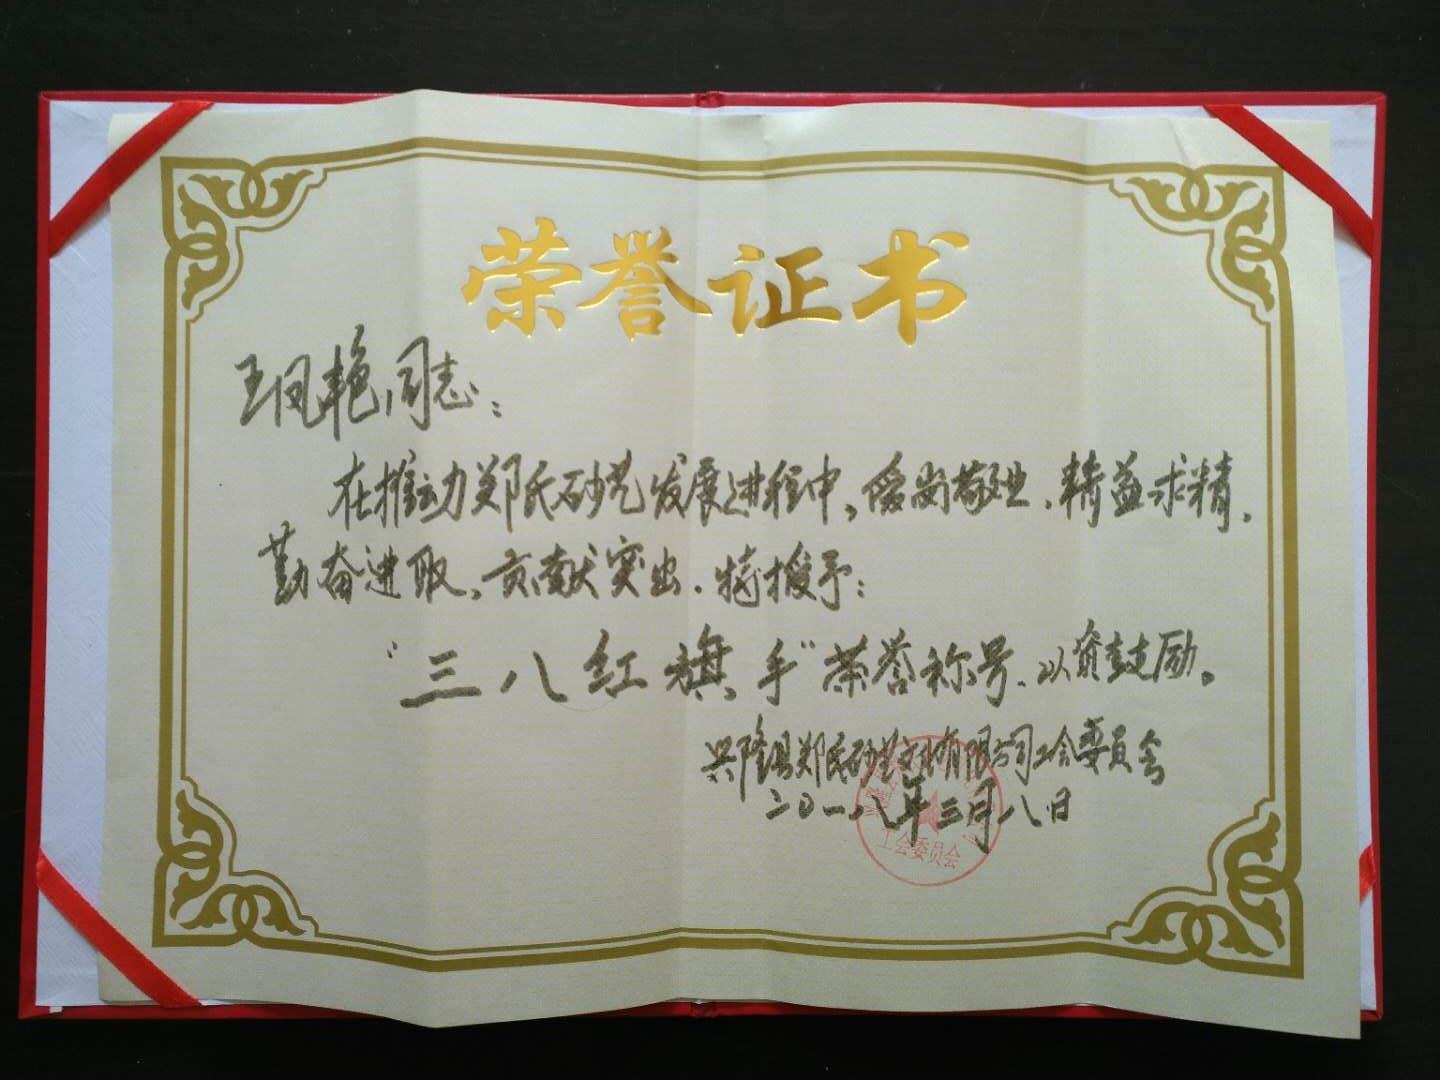 荣誉证书
王凤艳同志：
在推动郑氏砂艺发展进程中，爱岗敬业、精益求精、
勤奋进取、贡献突出、特授予：
“三八红旗手”荣誉称号、以资鼓励。
兴隆县郑氏砂艺有限公司工会委员会
二〇一八年三月八日
工会委员会